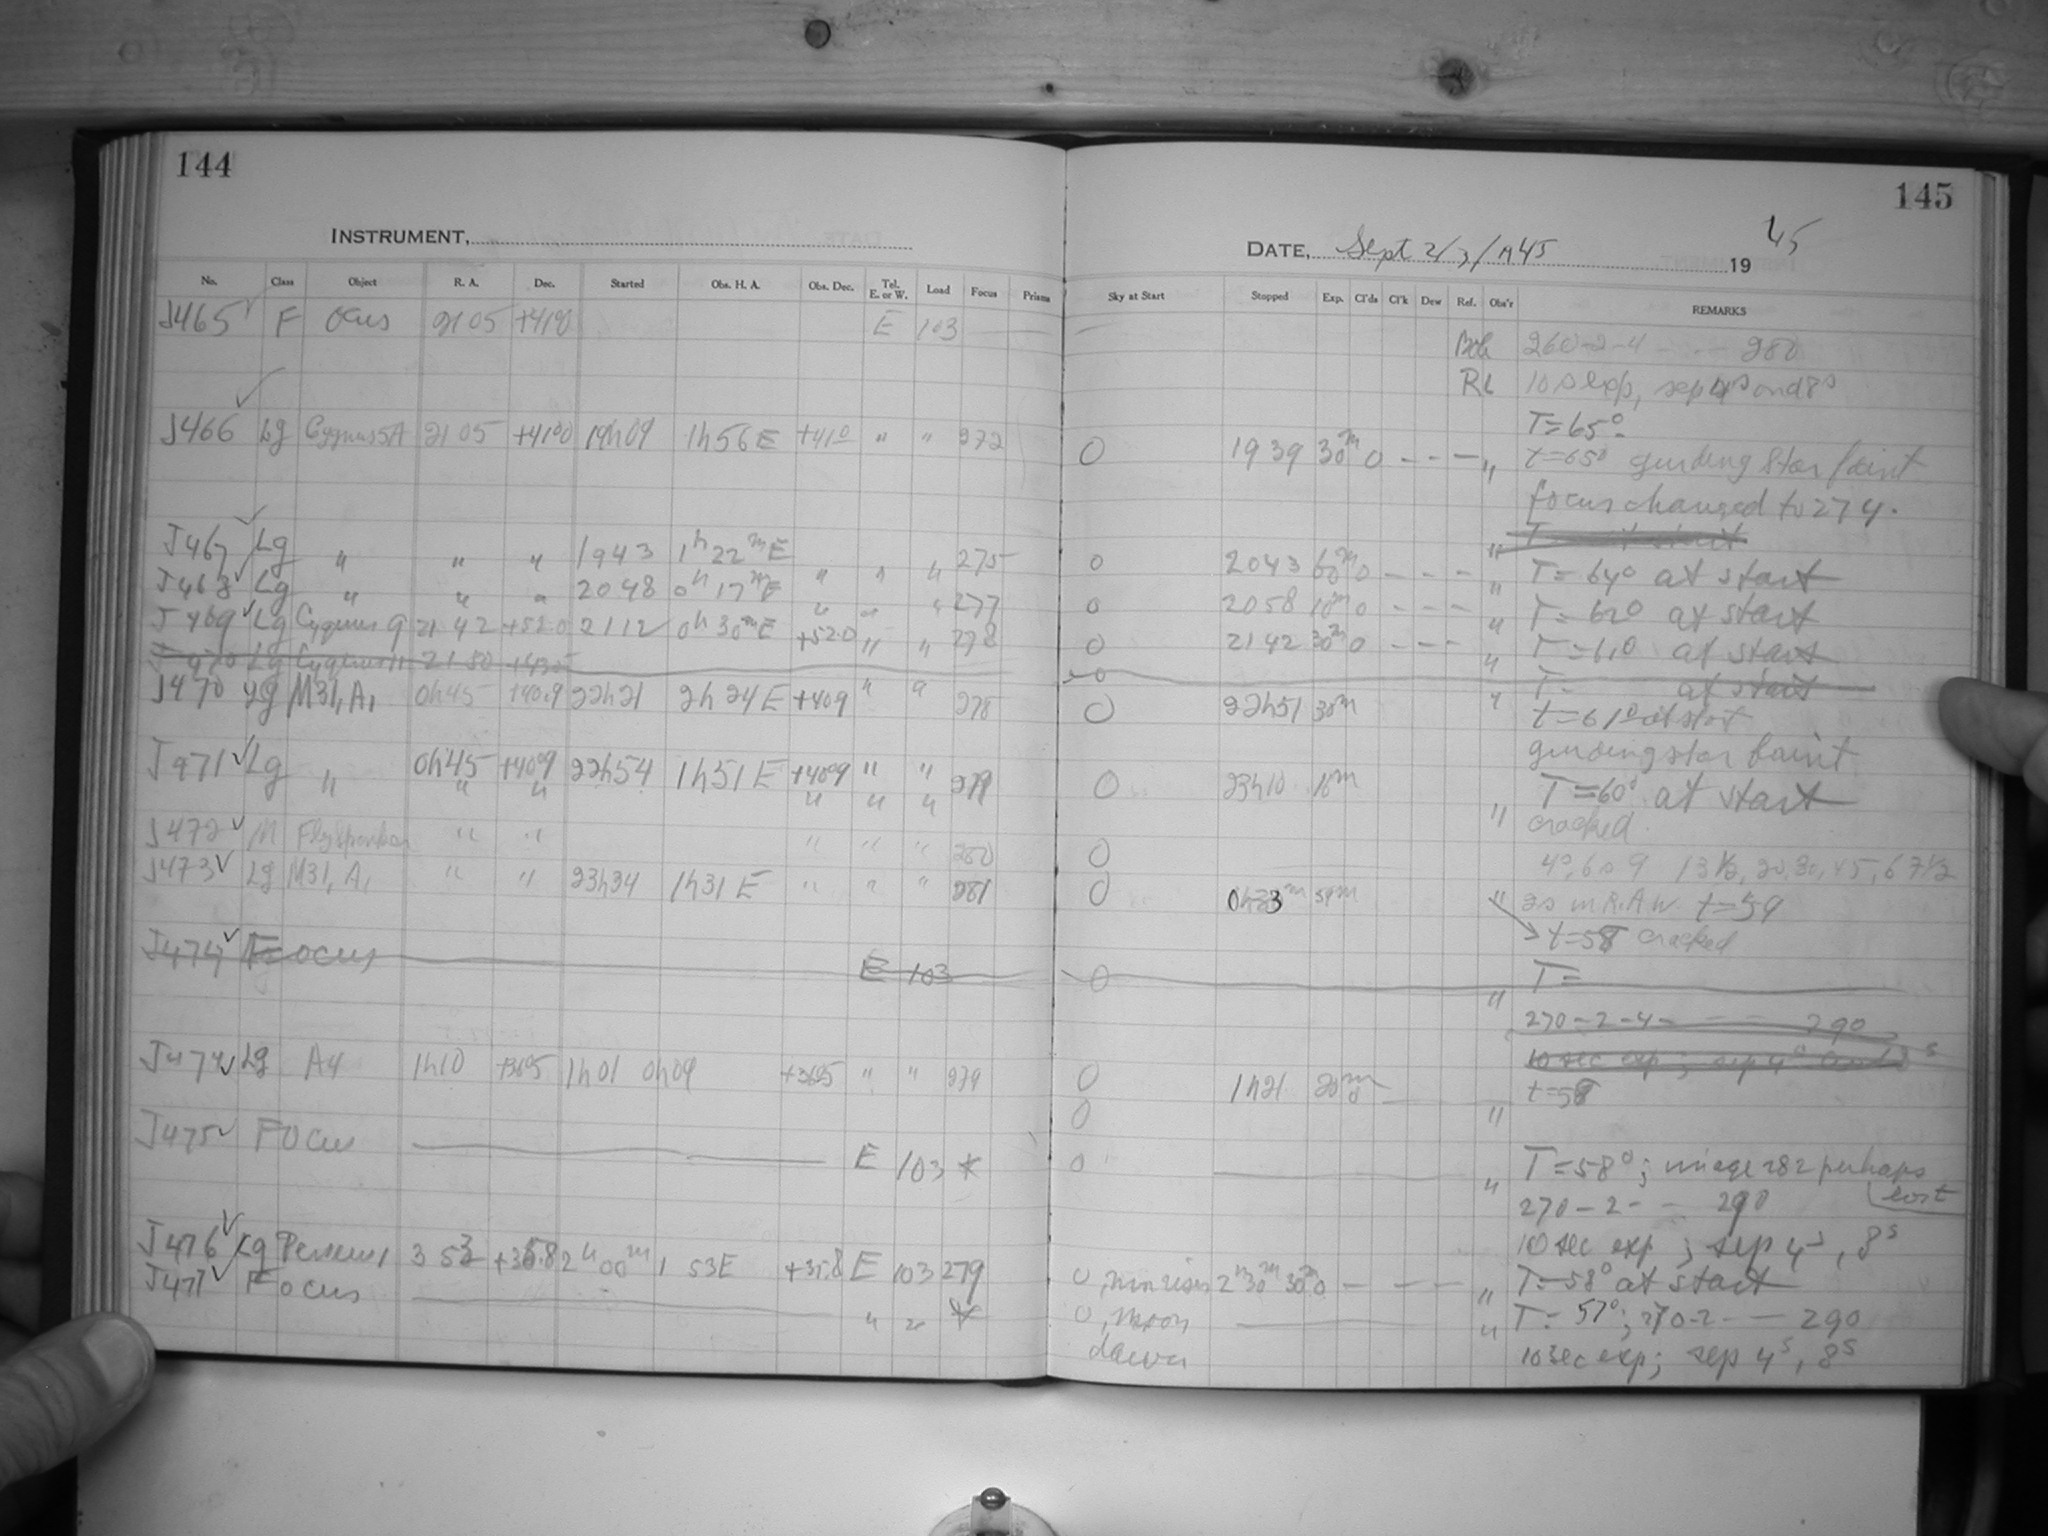 144
INSTRUMENT,
No. Class Object R. A. Dec. Started Obs. H. A. Obs. Dec. Tel. E. or W. Load Focus Prisms
J465 F ocus 2105 E 103
J466 Lg Cygnus5A 2105 +4100 19h09 1h56E +410 " " 272
J467 Lg " " " 1943 1h22mE " " " 275
J468 Lg " " " 2048 0h17mE " " " 277
J469 Lg Cygnus 9 21 42 +52.0 2112 0h30mE +52.0 " " 278
J470 Lg 2150
J470 Lg M31,A1 0h45 +40.9 22h21 2h24E +409 " " 278
J471 Lg " 0h45 +4009 22h54 1h51E +4009 " "
J472 M " " " " " 280
J473 Lg M31,A1 " " 23h34 1h31E " " " 281
J474 Focus E 103
J474 Lg A4 1h10 1h01 0h09 " " 279
J475 Focus E 103 *
J476 Lg Perseus1 2h00m 1 53E +35.8 E 103 279
J477 Focus " " *
145
DATE, Sept 2/3/1945 1945
Sky at Start Stopped Exp. Cl'ds Cl'k Dew Ref. Obs'r REMARKS
Bok 260-2-4 - - - 280
RL 10s exp, sep 4s and 8s
T=65°
0 1939 30m 0 - - - " t=65° guiding star faint
focus changed to 274.
0 2043 60m 0 - - - " T=64° at start
0 2058 10m 0 - - - " T=62° at start
0 2142 30m 0 - - - " T=61° at start
0 " T= at start
0 22h51 30m t=61° at start
guiding star faint
0 23h10 16m " T=60° at start
cracked
0 13½, 20, 30, 45, 67½
0 " t=59
t=58 cracked
0 " T=
270-2-4- - - 290
10 sec exp; sep 4s and 8s
0 1h21 20m " t=58
0
0 " T=58°; image 282 perhaps lost
270-2- - 290
10 sec exp; sep 4s, 8s
0, 2h30m 30m 0 - - - " T=58° at start
0, moon " T=57°; 270-2- - 290
dawn 10 sec exp; sep 4s, 8s